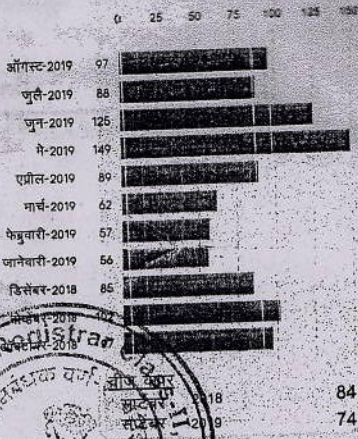 0 25 50 75 100 125 150
ऑगस्ट-2019 97
जुलै-2019 88
जुन-2019 125
मे-2019 149
एप्रील-2019 89
मार्च-2019 62
फेब्रुवारी-2019 57
जानेवारी-2019 56
डिसेंबर-2018 85
-2018 102
-2018
Registrar
वीज वापर
सप्टेंबर 2018 84
सप्टेंबर 2019 74